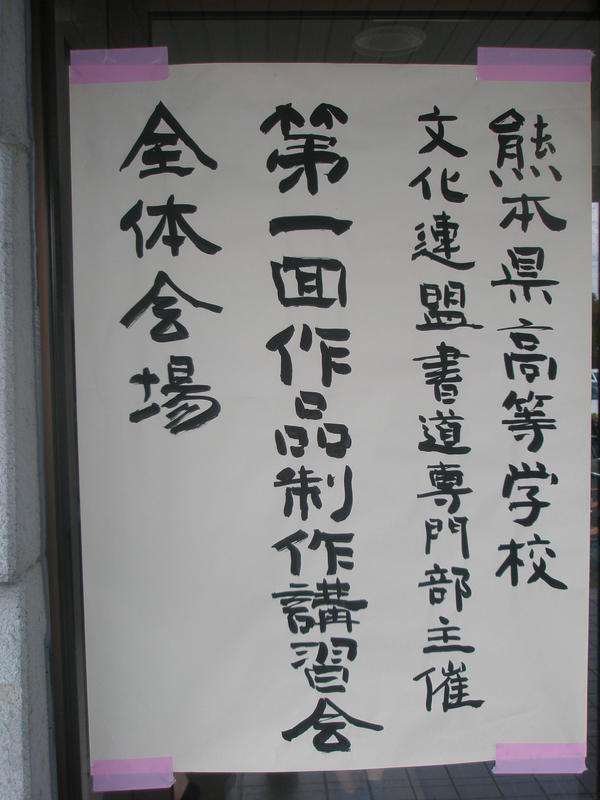 熊本県高等学校
文化連盟書道専門部主催
第一回作品制作講習会
全体会場